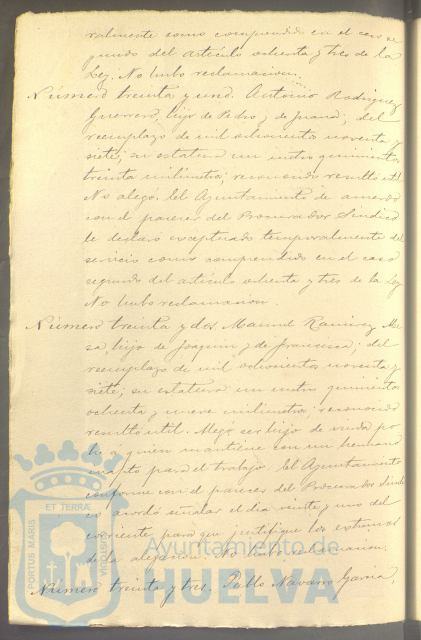 ralmente como comprendido en el caso se
gundo del artículo ochenta y tres de la
Ley. No hubo reclamacion.
Número treinta y uno. Antonio Rodriguez
Guerrero, hijo de Pedro y de Juana, del
reemplazo de mil ochocientos noventa y
siete; su estatura un metro quinientos
treinta milímetros; reconocido resultó útil.
No alegó. El Ayuntamiento de acuerdo
con el parecer del Procurador Síndico
le declaró exceptuado temporalmente del
servicio como comprendido en el caso
segundo del artículo ochenta y tres de la Ley
No hubo reclamacion.
Número treinta y dos. Manuel Ramirez Me
sa, hijo de Joaquin y de Francisca; del
reemplazo de mil ochocientos noventa y
siete; su estatura un metro quinientos
ochenta y nueve milímetros; reconocido
resultó útil. Alegó ser hijo de viuda po
bre á quien mantiene con un hermano
inapto para el trabajo. El Ayuntamiento
conforme con el parecer del Procurador Síndi
co acordó señalar el dia veinte y uno del
corriente para que justifique los extremos
de la alegacion. No hubo reclamacion.
Número treinta y tres. Pablo Navarro Garcia,
PORTUS MARIS
ET TERRAE
CUSTODIA
Ayuntamiento de
HUELVA